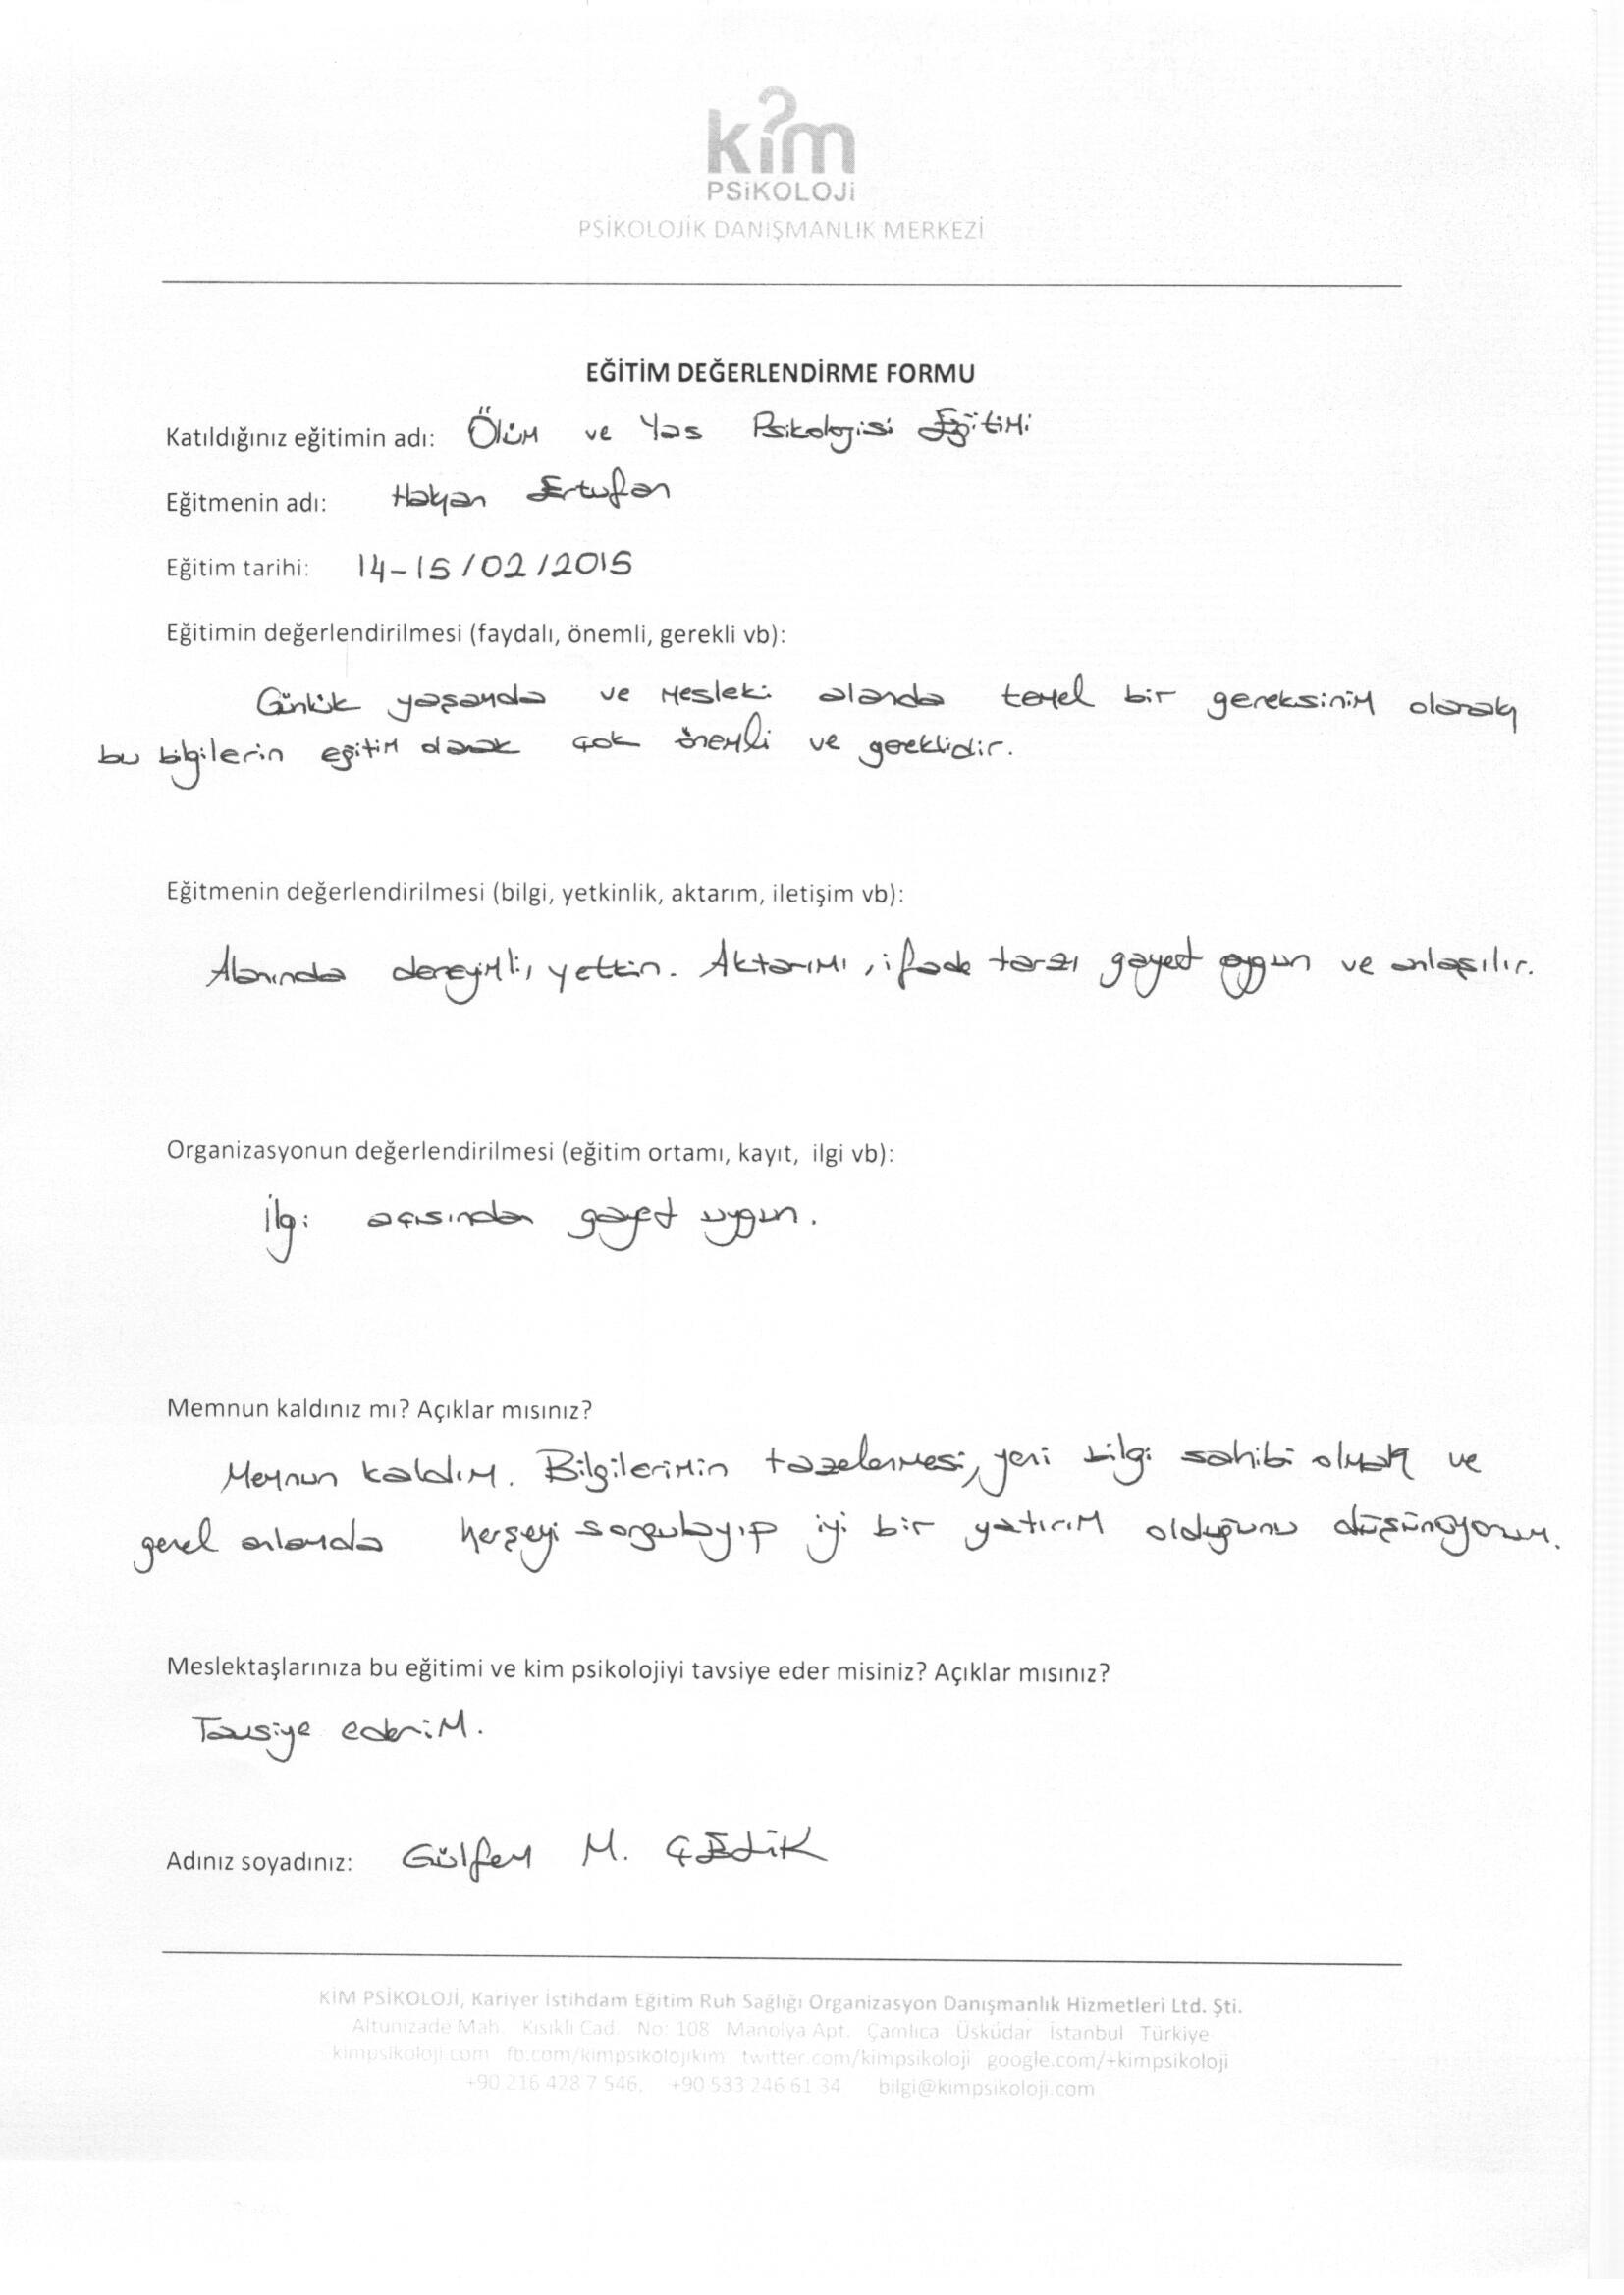 kim
PSiKOLOJi
PSİKOLOJİK DANIŞMANLIK MERKEZİ
EĞİTİM DEĞERLENDİRME FORMU
Katıldığınız eğitimin adı: Ölüm ve Yas Psikolojisi Eğitimi
Eğitmenin adı: Hakan Ertufan
Eğitim tarihi: 14-15/02/2015
Eğitimin değerlendirilmesi (faydalı, önemli, gerekli vb):
Günlük yaşamda ve mesleki alanda temel bir gereksinim olarak
bu bilgilerin eğitim olarak çok önemli ve gereklidir.
Eğitmenin değerlendirilmesi (bilgi, yetkinlik, aktarım, iletişim vb):
Alanında deneyimli, yetkin. Aktarımı, ifade tarzı gayet uygun ve anlaşılır.
Organizasyonun değerlendirilmesi (eğitim ortamı, kayıt, ilgi vb):
İlgi açısından gayet uygun.
Memnun kaldınız mı? Açıklar mısınız?
Memnun kaldım. Bilgilerimin tazelenmesi, yeni bilgi sahibi olmak ve
genel anlamda herşeyi sorgulayıp iyi bir yatırım olduğunu düşünüyorum.
Meslektaşlarınıza bu eğitimi ve kim psikolojiyi tavsiye eder misiniz? Açıklar mısınız?
Tavsiye ederim.
Adınız soyadınız: Gülfem M. ÇELİK
KİM PSİKOLOJİ, Kariyer İstihdam Eğitim Ruh Sağlığı Organizasyon Danışmanlık Hizmetleri Ltd. Şti.
Altunizade Mah. Kısıklı Cad. No: 108 Manolya Apt. Çamlıca Üsküdar İstanbul Türkiye
kimpsikoloji.com fb.com/kimpsikolojikim twitter.com/kimpsikoloji google.com/+kimpsikoloji
+90 216 428 7 546, +90 533 246 61 34 bilgi@kimpsikoloji.com